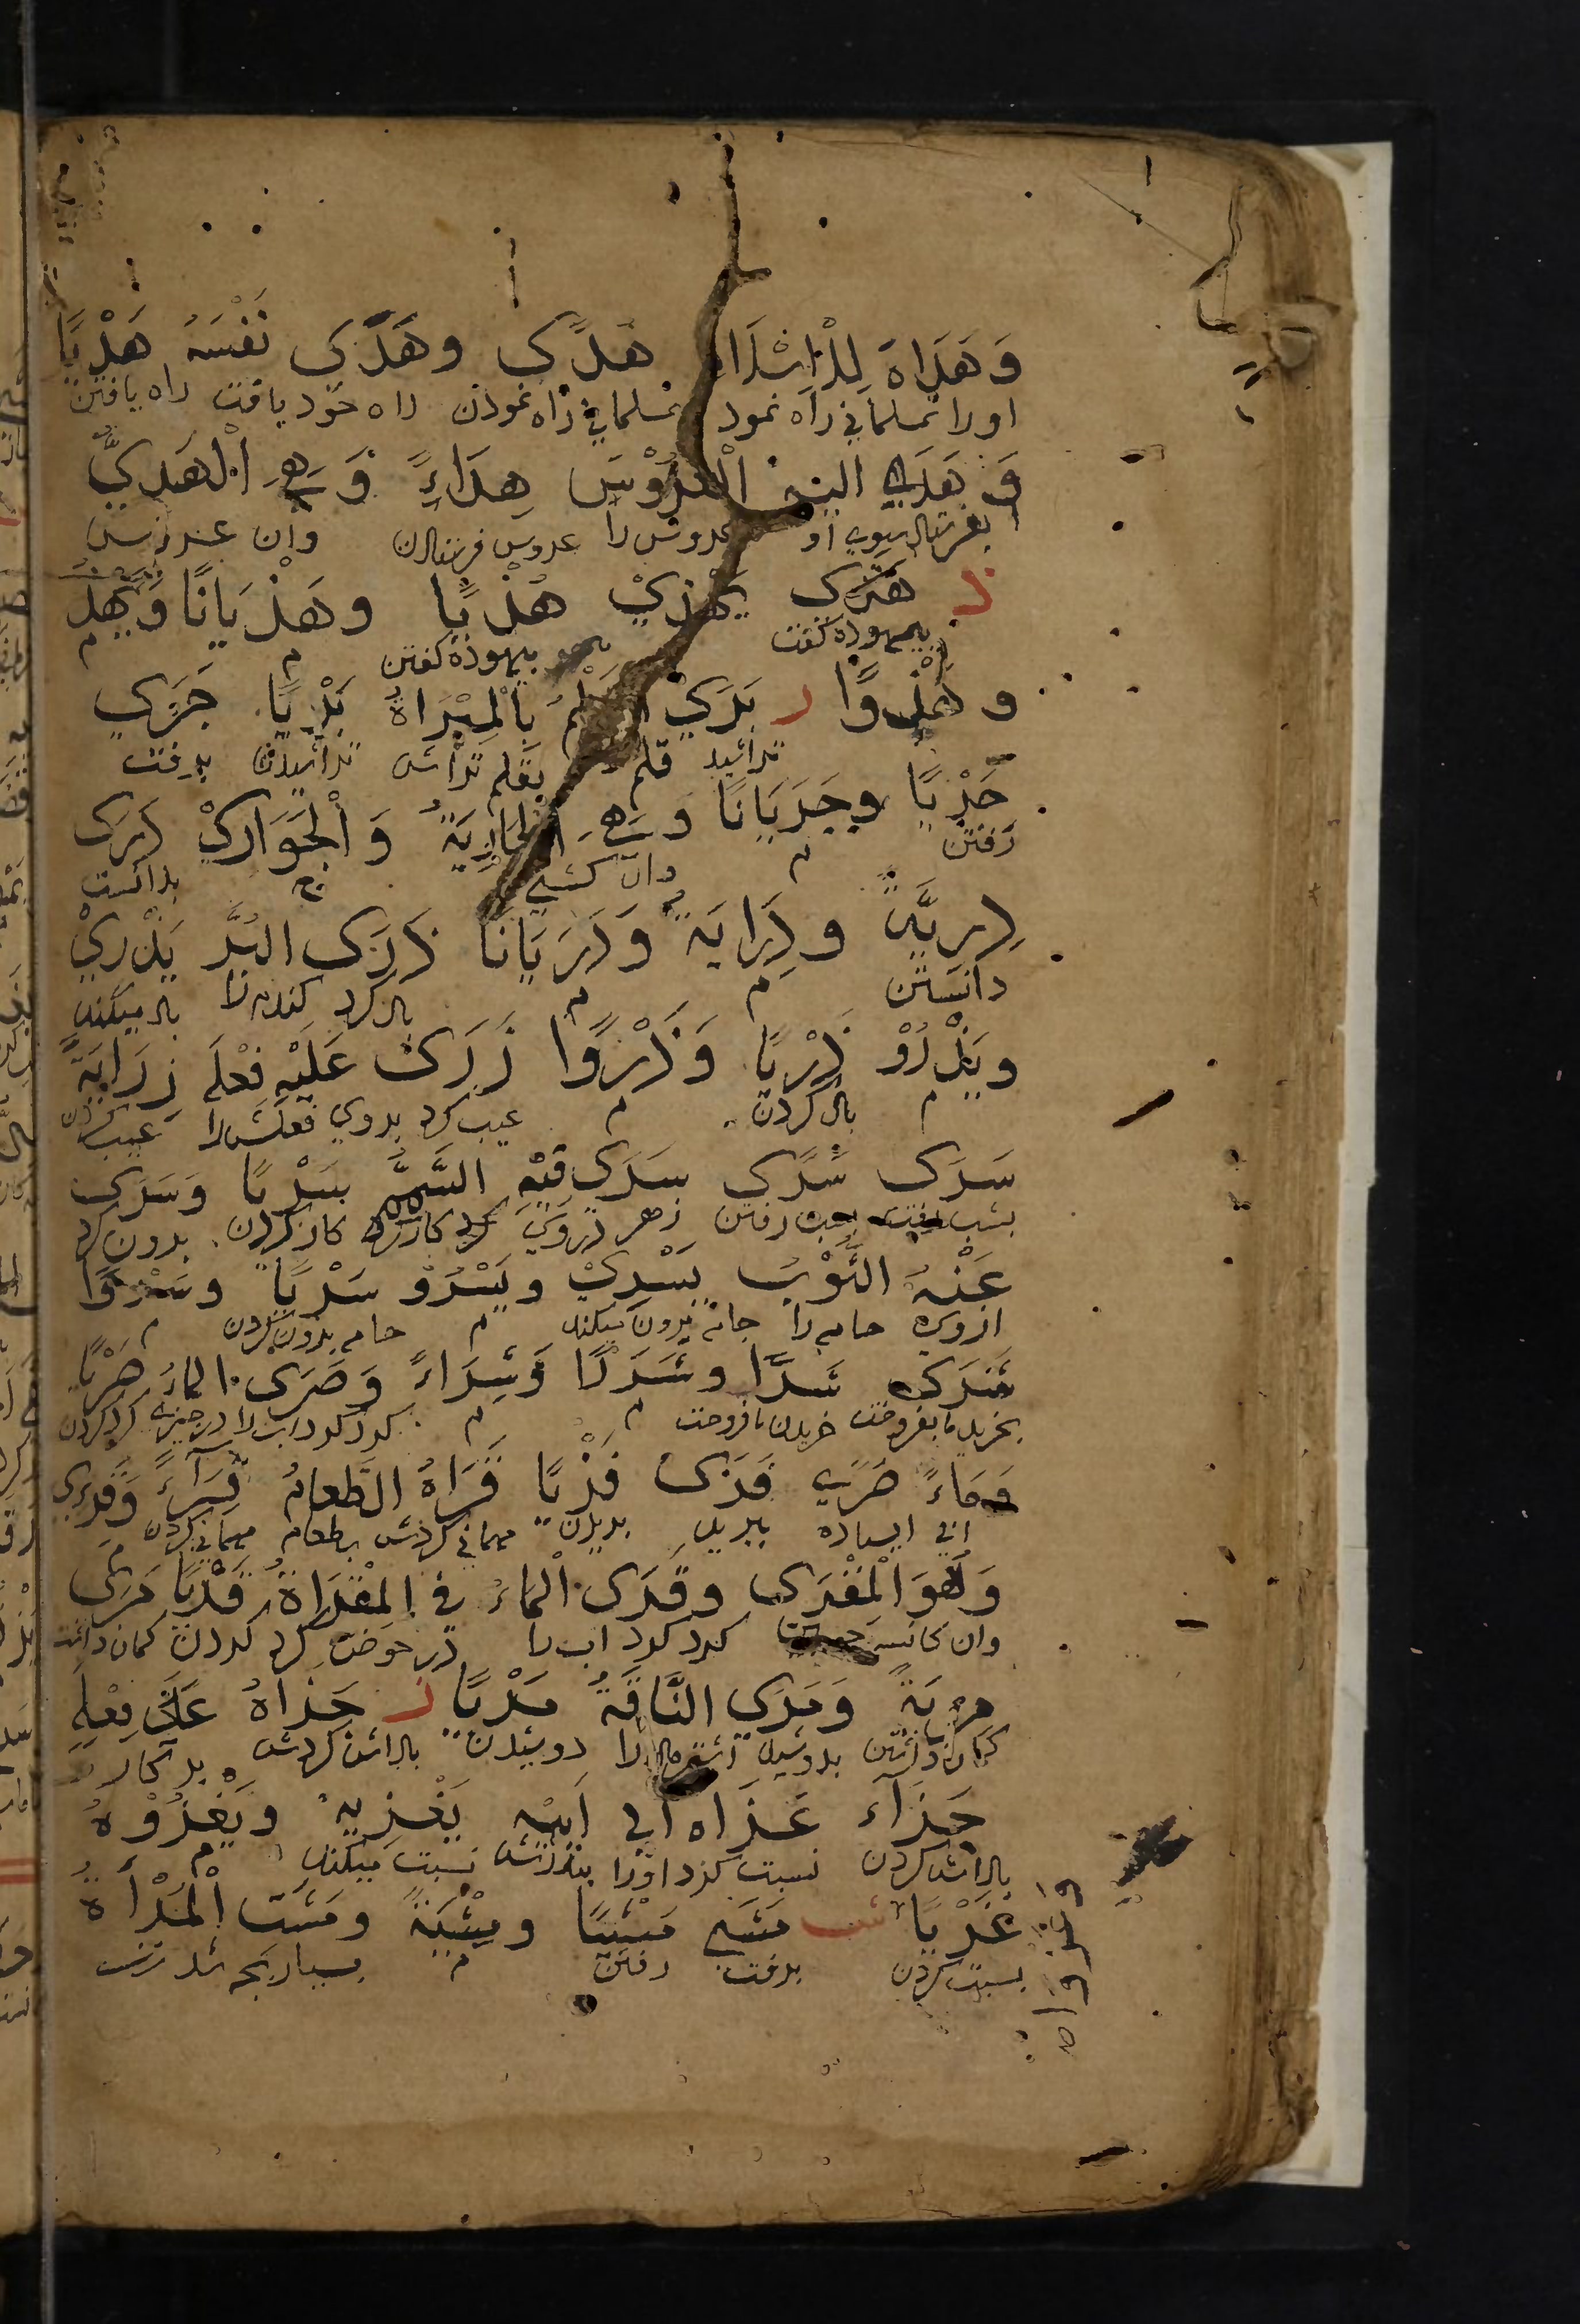 وَهَدَاهُ لِلْإِسْلَامِ هُدًى وهَدَى نَفْسَهُ هَدْيًا
اورا بمسلمانی راه نمود بمسلمانی راه نمودن راه خود یافت راه یافتن
وَهَدَى اليه الْعَرُوْسَ هِدَاءً وَهِيَ الْهَدِيُّ
بفرستاد بسوی او عروس را عروس فرستادن وان عروس
ذ هَذَى يَهْذِيْ هَذْيًا وهَذَيَانًا
بیهوده گفت بیهوده گفتن م م
و هَذْوًا ر بَرَى الْقَلَمَ بِالْمِبْرَاةِ بَرْيًا جَرَى
تراشید قلم بقلم تراش تراشیدن برفت
جَرْيًا وجَرَيَانًا وَهِيَ الْجَارِيَةُ وَالْجَوَارِيْ دَرَى
رفتن م وان کشتی ج بدانست
دِرْيَةً و دِرَايَةً وَدَرَيَانًا ذَرَى البُرَّ يَذْرِيْ
دانستن م م باد کرد گندم را باد میکند
ويَذْرُوْ ذَرْيًا وَذَرْوًا زَرَى عَلَيْهِ فِعْلَهُ زِرَايَةً
م باد کردن م عیب کرد بروی فعلش را عیب کردن
سَرَى سُرًى سَرَى فيْهِ السَّمُّ سَرْيًا وَسَرَى
بشب رفت بشب رفتن زهر دروی کار کرد کار کردن بیرون کرد
عَنْهُ الثَّوْبَ يَسْرِيْ ويَسْرُوْ سَرْيًا وسَرْوًا
ازوی جامه را جامه بیرون میکند م جامه بیرون کردن م
شَرَى شِرًا وشِرَاءً وَصَرَى الماءَ صَرْيًا
بخرید یا بفروخت خریدن یا فروختن م م گرد کرد اب را گرد کردن
وَمَاءً صَرًى فَرَى فَرْيًا قَرَاهُ الطَّعَامَ قِرَاءً وَقِرًى
ابی ایستاده ببرید بریدن مهمانی کردش بطعام مهمانی کردن م
وَهُوَ الْمَقْرَى وقَرَى الْمَاءَ فِي الْمِقْرَاةِ قَرْيًا مَرَى
وان کاسه گرد کرد اب را در حوض گرد کردن گمان داشت
مِرْيَةً وَمَرَى النَّاقَةَ مَرْيًا ز جَزَاهُ عَلَى فِعْلِهِ
گمان داشتن بدوشید اشتر ماده را دوشیدن پاداش کردش بر کار
جَزَاءً عَزَاه الي اَبِيْهِ يَعْزِيهِ وَيَعْزُوْهُ
پاداش کردن نسبت کرد اورا بپدرش نسبت میکند م
عَزْيًا ش مَشَى مَشْيًا ومِشْيَةً ومَشَتِ الْمَرْأَةُ
نسبت کردن برفت رفتن م بسیار بچه شد زن